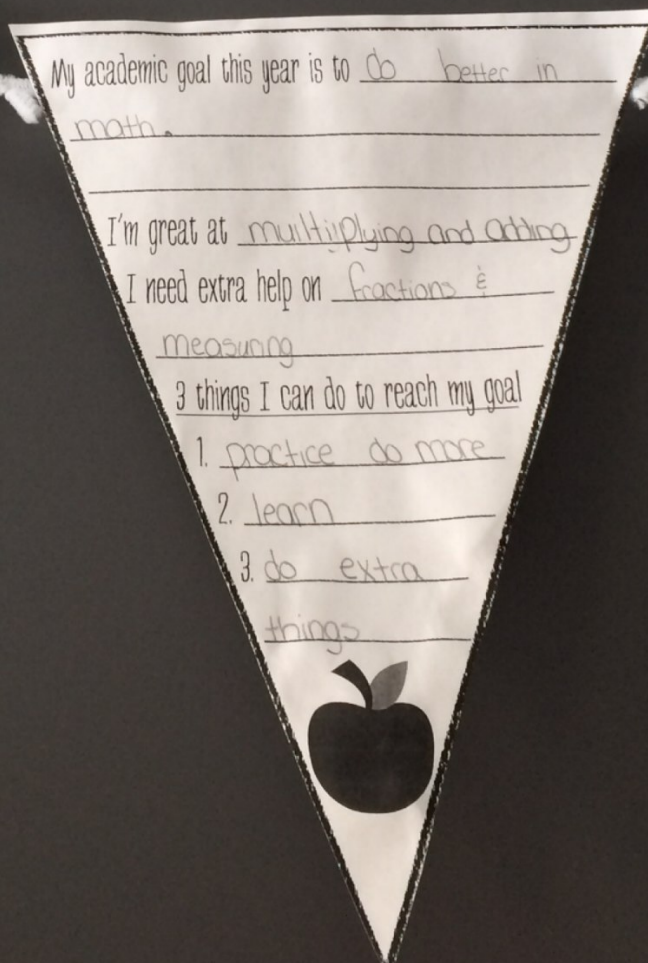 My academic goal this year is to do better in
math.
I'm great at multiplying and adding
I need extra help on fractions &
measuring
3 things I can do to reach my goal
1. practice do more
2. learn
3. do extra
things